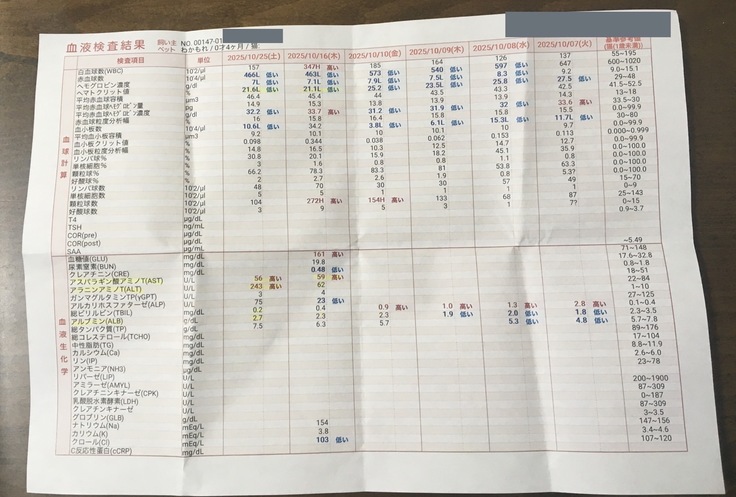 血液検査結果 飼い主 NO. 00147-01
ペット わかもれ / 0才4ヶ月 / 猫
検査項目 単位 2025/10/25(土) 2025/10/16(木) 2025/10/10(金) 2025/10/09(木) 2025/10/08(水) 2025/10/07(火) 基準参考値 (猫(1歳未満))
血球計算
白血球数(WBC) 10^2/μl 157 347H 高い 185 164 126 55~195
赤血球数 10^4/μl 466L 低い 463L 低い 573 低い 540 低い 597 低い 647 600~1020
ヘモグロビン濃度 g/dl 7L 低い 7.1L 低い 7.9L 低い 7.5L 低い 8.3 低い 9.2 9.0~15.1
ヘマトクリット値 % 21.6L 低い 21.1L 低い 25.2 低い 23.5L 低い 25.8 低い 27.5 低い 29~48
平均赤血球容積 μm3 46.4 45.4 44 43.5 43.3 42.5 41.5~52.5
平均赤血球ﾍﾓｸﾞﾛﾋﾞﾝ量 pg 14.9 15.3 13.8 13.9 13.9 14.3 13~18
平均赤血球ﾍﾓｸﾞﾛﾋﾞﾝ濃度 g/dl 32.2 低い 33.7 高い 31.2 低い 31.9 低い 32 低い 33.6 高い 30.5~35
赤血球粒度分析幅 % 16 15.8 16.4 15.8 15.8 15.5 0.0~99.9
血小板数 10^4/μl 10.6L 低い 34.2 3.8L 低い 6.1L 低い 15.3L 低い 11.7L 低い 30~80
平均血小板容積 μm3 9.2 10.1 10 10 10 9.7 0.0~99.9
血小板クリット値 % 0.098 0.344 0.038 0.062 0.153 0.113 0.000~0.999
血小板粒度分析幅 % 14.8 16.5 10.3 12.5 14.7 12.7 0.0~99.9
リンパ球% % 30.8 20.1 15.9 18.2 45.1 35.9 0.0~100.0
単核細胞% % 3 1.6 0.8 0.8 1.1 0.8 0.0~100.0
顆粒球% % 66.2 78.3 83.3 81 53.8 63.3 0.0~100.0
好酸球% % 2 2.7 2.6 1.9 0.8 5.3? 0.0~100.0
リンパ球数 10^2/μl 48 70 30 30 57 49 15~70
単核細胞数 10^2/μl 5 5 1 1 1 1 0~9
顆粒球数 10^2/μl 104 272H 高い 154H 高い 133 68 87 25~143
好酸球数 10^2/μl 3 9 5 3 1 7? 0~15
T4 μg/dL 0.9~3.7
TSH ng/mL
COR(pre) μg/dL
COR(post) μg/dL
SAA μg/mL ~5.49
血液生化学
血糖値(GLU) mg/dL 161 高い 71~148
尿素窒素(BUN) mg/dL 19.8 17.6~32.8
クレアチニン(CRE) mg/dL 0.48 低い 0.8~1.8
アスパラギン酸アミノT(AST) U/L 56 高い 59 高い 18~51
アラニンアミノT(ALT) U/L 243 高い 62 22~84
ガンマグルタミンTP(γGPT) U/L 3 4 1~10
アルカリホスファターゼ(ALP) U/L 75 23 低い 27~125
総ビリルビン(TBIL) mg/dL 0.2 0.4 0.9 高い 1.0 高い 1.3 高い 2.8 高い 0.1~0.4
アルブミン(ALB) g/dL 2.7 2.3 2.3 1.9 低い 2.0 低い 1.8 低い 2.3~3.5
総タンパク質(TP) g/dL 7.5 6.3 5.7 5.3 低い 4.8 低い 5.7~7.8
総コレステロール(TCHO) mg/dL 89~176
中性脂肪(TG) mg/dL 17~104
カルシウム(Ca) mg/dL 8.8~11.9
リン(IP) mg/dL 2.6~6.0
アンモニア(NH3) μg/dL 23~78
リパーゼ(LIP) U/L
アミラーゼ(AMYL) U/L 200~1900
クレアチンキナーゼ(CPK) U/L 87~309
乳酸脱水素酵素(LDH) U/L 0~187
クレアチンキナーゼ U/L 87~309
グロブリン(GLB) g/dL 3~3.5
ナトリウム(Na) mEq/L 154 147~156
カリウム(K) mEq/L 3.8 3.4~4.6
クロール(Cl) mEq/L 103 低い 107~120
C反応性蛋白(cCRP) mg/dL